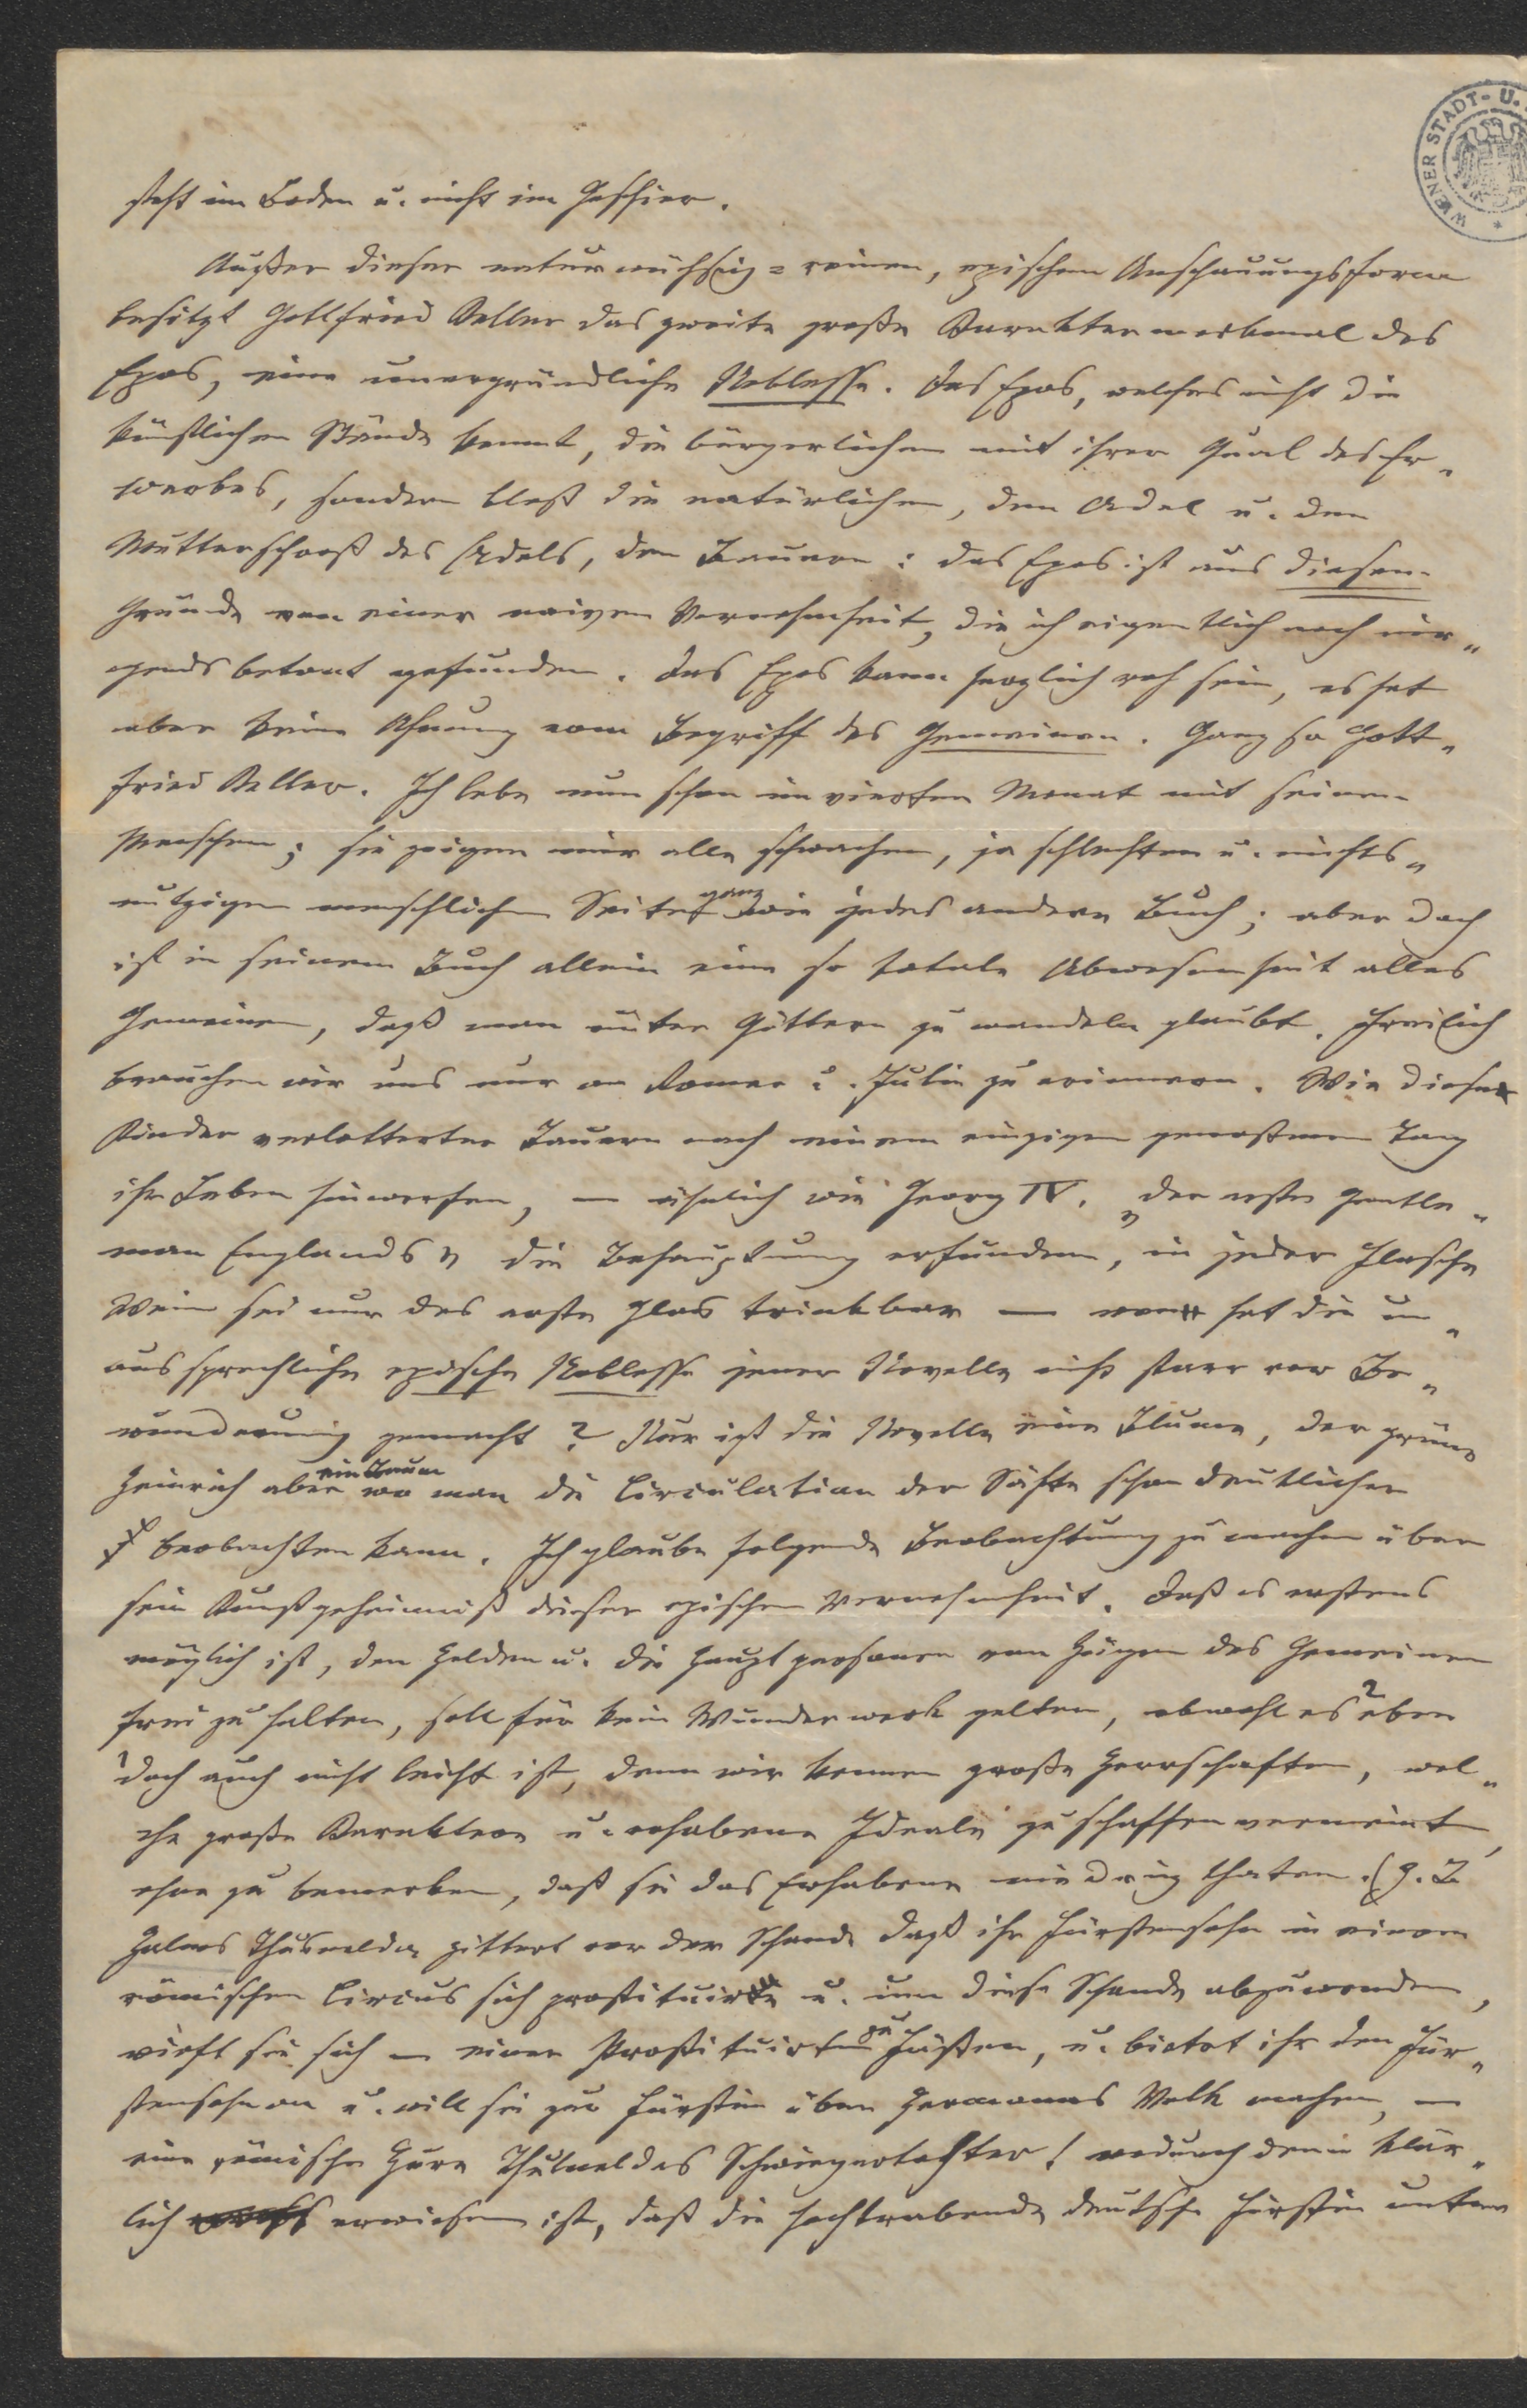 steht im Boden u. nicht im Geschirr.
Außer dieser naturwüchsig=reinen, epischen Anschauungsform
besitzt Gottfried Keller das zweite große Karaktermerkmal des
Epos, eine unergründliche Noblesse. Das Epos, welches nicht die
künstlichen Stände kennt, die bürgerlichen mit ihrer Qual des Er-
werbes, sondern bloß die natürlichen, den Adel u. den
Mutterschooß des Adels, den Bauern: das Epos ist aus diesem
Grunde von einer naiven Vornehmheit, die ich eigentlich noch nir-
gends betont gefunden. Das Epos kann herzlich roh sein, es hat
aber keine Ahnung vom Begriff des Gemeinen. Ganz so Gott-
fried Keller. Ich lebe nun schon im vierten Monat mit seinen
Menschen; sie zeigen mir alle schwachen, ja schlechten u. nichts-
nutzigen menschlichen Seiten ganz wie jedes andere Buch; aber doch
ist in seinem Buch allein eine so totale Abwesenheit alles
Gemeinen, daß man unter Göttern zu wandeln glaubt. Freilich
brauchen wir uns nur an Romeo u. Julia zu erinnern. Wie diese
Kinder verlotterter Bauern nach einem einzigen genoßenen Tag
ihr Leben hinwerfen, — ähnlich wie Georg IV. „der erste Gentle-
man Englands" die Behauptung erfunden, in jeder Flasche
Wein sei nur das erste Glas trinkbar — wen hat die un-
aussprechliche epische Noblesse jener Novelle nicht starr vor Be-
wunderung gemacht? Nur ist die Novelle eine Blume, der grüne
Heinrich aber ein Baum wo man die Circulation der Säfte schon deutlicher
beobachten kann. Ich glaube folgende Beobachtung zu machen über
sein Kunstgeheimniß dieser epischen Vornehmheit. Daß es erstens
möglich ist, den Helden u. die Hauptpersonen von Zügen des Gemeinen
frei zu halten, soll für kein Wunderwerk gelten, obwohl es eben
doch auch nicht leicht ist, denn wir kennen große Herrschaften, wel-
che große Karaktere u. erhabene Ideale zu schaffen vermeint,
ohne zu bemerken, daß sie das Erhabene niedrig thaten. (Z. B.
Halms Thusnelda zittert vor der Schande daß ihr Fürstensohn in einem
römischen Circus sich prostituire u. um diese Schande abzuwenden,
wirft sie sich — einer Prostituirten zu Füßen, u. bietet ihr den Für-
stensohn an u. will sie zur Fürstin über Hermanns Volk machen, —
eine römische Hure Thusneldas Schwiegertochter! wodurch denn klär-
lich erwiesen ist, daß die hochtrabende deutsche Fürstin unter
WIENER STADT- U.